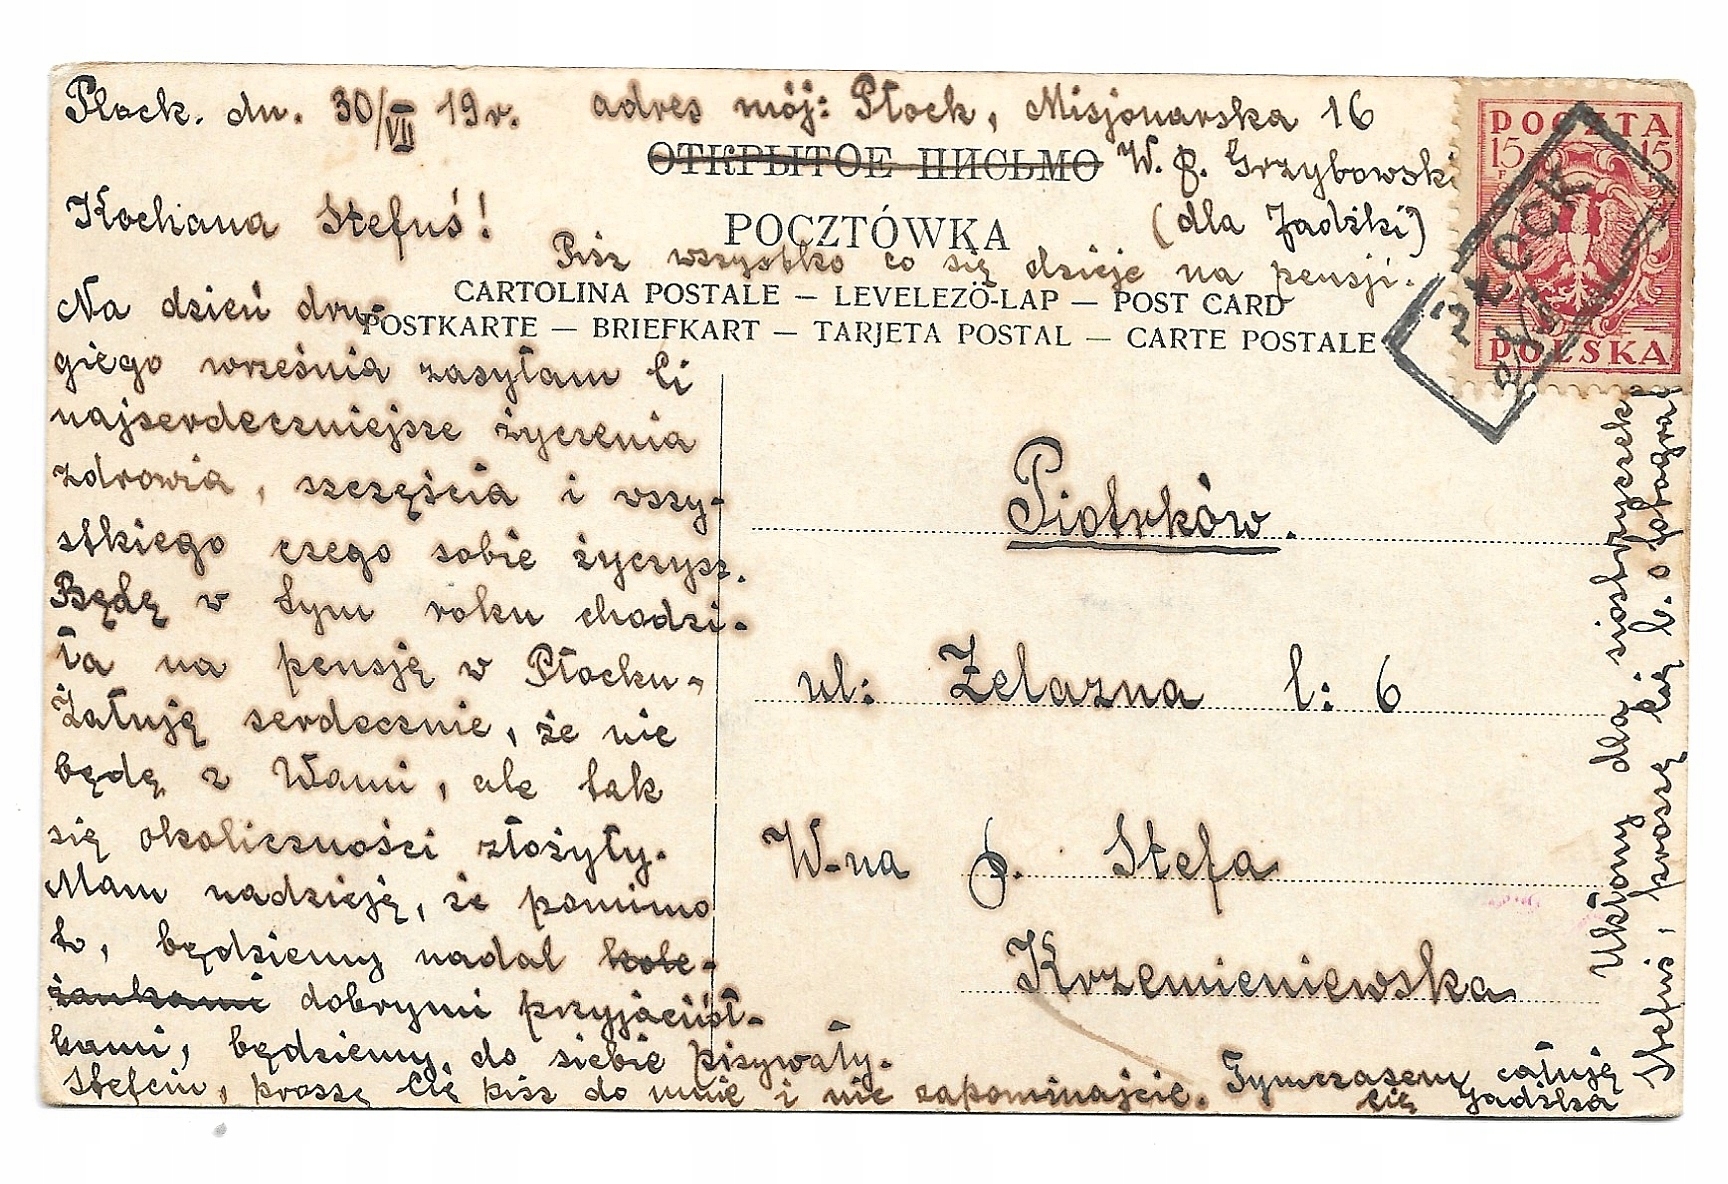 Płock. dn. 30/VII 19 r. adres mój: Płock, Misjonarska 16
ОТКРЫТОЕ ПИСЬМО W. P. Grzybowski
(dla Jadźki)
Kochana Stefuś!
POCZTÓWKA
Pisz wszystko co się dzieje na pensji.
CARTOLINA POSTALE — LEVELEZÖ-LAP — POST CARD
POSTKARTE — BRIEFKART — TARJETA POSTAL — CARTE POSTALE
POCZTA
15 15
POLSKA
PŁOCK
Na dzień dru-
giego września zasyłam Ci
najserdeczniejsze życzenia
zdrowia, szczęścia i wszy-
stkiego czego sobie życzysz.
Będę w tym roku chodzi-
ła na pensję w Płocku.
Żałuję serdecznie, że nie
będę z Wami, ale tak
się okoliczności złożyły.
Mam nadzieję, że pomimo
to, będziemy nadal kole-
żankami dobrymi przyjaciół-
kami, będziemy do siebie pisywały.
Stefciu, proszę Cię pisz do mnie i nie zapominajcie. Tymczasem całuję
cię Jadźka
Piotrków.
ul: Żelazna l: 6
W-na P. Stefa
Krzemieniewska
Ukłony dla siostrzyczek
Stefuś, proszę Cię b. o fotograf